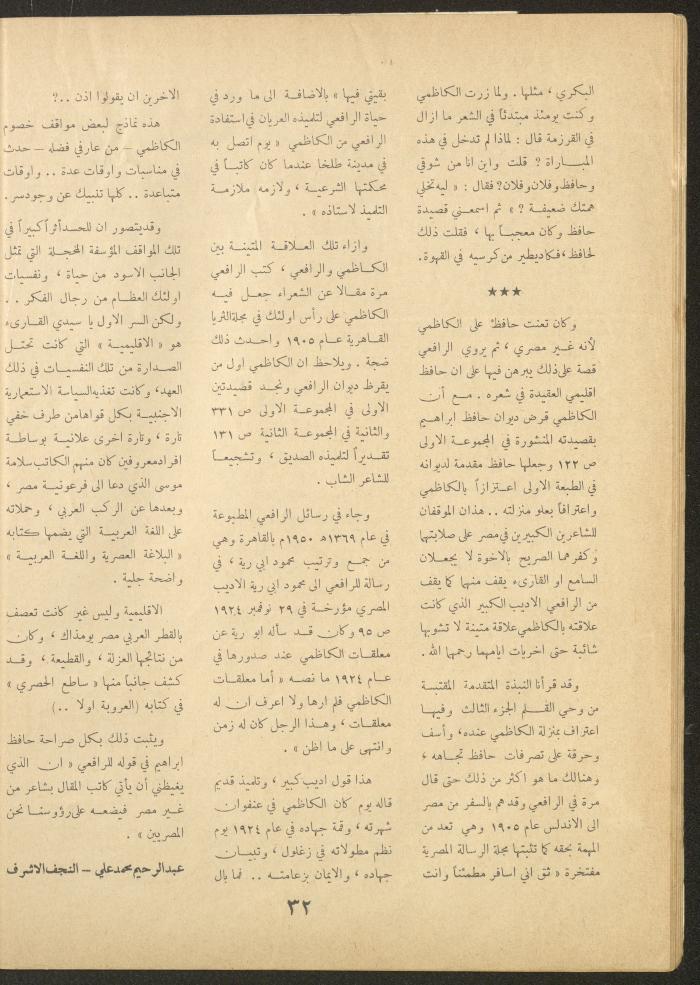 البكري ، مثلها . ولما زرت الكاظمي
وكنت يومئذ مبتدئاً في الشعر ما ازال
في القرزمة قال : لماذا لم تدخل في هذه
المبــاراة ? قلت واين انا من شوقي
وحافظ وفلان وفلان? فقال : « ليه تخلي
همتك ضعيفة ? » ثم اسمعني قصيدة
حافظ وكان معجبــاً بها ، فقلت ذلك
لحافظ ، فكاد يطير من كرسيه في القهوة.
★★★
وكان تعنت حافظ على الكاظمي
لأنه غــير مصري ، ثم يروي الرافعي
قصة على ذلك يبرهن فيها على ان حافظ
اقليمي العقيدة في شعره . مــع أن
الكاظمي قرض ديوان حافظ ابراهيم
بقصيدته المنشورة في المجموعــة الاولى
ص ١٢٢ وجعلها حافظ مقدمة لديوانه
في الطبعة الاولى اعــتزازاً بالكاظمي
واعترافاً بعلو منزلته .. هذان الموقفان
للشاعرين الكبيرين في مصر على صلابتها
وكفرهما الصريح بالاخوة لا يجعــلان
السامع او القارىء يقف منهما كما يقف
من الرافعي الاديب الكبير الذي كانت
علاقته بالكاظمي علاقة متينة لا تشوبها
شائبة حتى اخريات ايامهما رحمهما الله .
وقد قرأنا النبذة المتقدمة المقتبسة
من وحي القــلم الجزء الثالث وفيهــا
اعتراف بمنزلة الكاظمي عنده، وأسف
وحرقة على تصرفات حافظ تجــاهه ،
وهنالك ما هو اكثر من ذلك حتى قال
مرة في الرافعي وقد هم بالسفر من مصر
الى الاندلس عام ١٩٠٥ وهي تعد من
المهمة بحقه كما تثبتها مجلة الرسالة المصرية
مفتخرة « ثق اني اسافر مطمئناً وانت
بقيتي فيها » بالاضافــة الى ما ورد في
حياة الرافعي لتلميذه العريان في استفادة
الرافعي من الكاظمي « يوم اتصل به
في مدينة طلخا عندما كان كاتبــاً في
محكمتها الشرعيــة ، ولازمه ملازمــة
التلميذ لاستاذه » .
وازاء تلك العــلاقــة المتينــة بين
الكــاظمي والرافعي ، كتب الرافعي
مرة مقــالا عن الشعراء جعــل فيــه
الكاظمي على رأس اولئك في مجلة الثريا
القاهرية عــام ١٩٠٥ واحــدث ذلك
ضجة . ويلاحظ ان الكاظمي اول من
يقرظ ديوان الرافعي ونجــد قصيدتين
الاولى في المجموعــة الاولى ص ٣٣١
والثانية في المجموعة الثانية ص ١٣١
تقــديراً لتلميذه الصديق ، وتشجيعــاً
للشاعر الشاب .
وجاء في رسائل الرافعي المطبوعة
في عام ١٣٦٩هـ ١٩٥٠م بالقاهرة وهي
من جمــع وترتيب محمود ابي رية ، في
رسالة للرافعي الى محمود ابي رية الاديب
المصري مؤرخــة في ٢٩ نوفمبر ١٩٢٤
ص ٩٥ وكان قــد سأله ابو رية عن
معلقات الكاظمي عند صدورها في
عــام ١٩٢٤ ما نصــه « أما معلقات
الكاظمي فلم ارها ولا اعرف ان له
معلقات ، وهــذا الرجل كان له زمن
وانتهى على ما اظن » .
هذا قول اديب كبير ، وتلميذ قديم
قاله يوم كان الكاظمي في عنفوان
شهرته ، وقمة جهاده في عام ١٩٢٤ يوم
نظم مطولاته في زغلول ، وتبيــان
جهاده ، والايمان بزعامتــه .. فما بال
الاخرين ان يقولوا اذن ..?
هذه نماذج لبعض مواقف خصوم
الكاظمي – من عارفي فضله – حدث
في مناسبات واوقات عدة .. واوقات
متباعدة .. كلها تنبيك عن وجود سر.
وقد يتصور ان للحسد أثراً كبيراً في
تلك المواقف المؤسفة المخجــلة التي تمثل
الجانب الاسود من حياة ، ونفسيات
اولئك العظــام من رجال الفكر . .
ولكن السر الاول يا سيدي القــارىء
هو « الاقليميــة » التي كانت تحتــل
الصــدارة من تلك النفسيــات في ذلك
العهد، وكانت تغذيه السياسة الاستعمارية
الاجنبيــة بكل قواها من طرف خفي
تارة ، وتارة اخرى علانيــة بوساطــة
افراد معروفين كان منهم الكاتب سلامة
موسى الذي دعا الى فرعونيــة مصر ،
وبعدها عن الركب العربي ، وحملاته
على اللغة العربيــة التي يضمها كتابه
« البلاغة العصرية واللغــة العربيــة »
واضحة جلية .
الاقليمية وليس غير كانت تعصف
بالقطر العربي مصر يومذاك ، وكــان
من نتائجها العزلة ، والقطيعة ، وقــد
كشف جانباً منها « ساطع الحصري »
في كتابه (العروبة اولا ..)
ويثبت ذلك بكل صراحة حافظ
ابراهيم في قوله للرافعي « ان الذي
يغيظني أن يأتي كاتب المقال بشاعر من
غــير مصر فيضعــه على رؤوسنــا نحن
المصريين » .
عبدالرحيم محمد علي – النجف الاشرف
٣٢